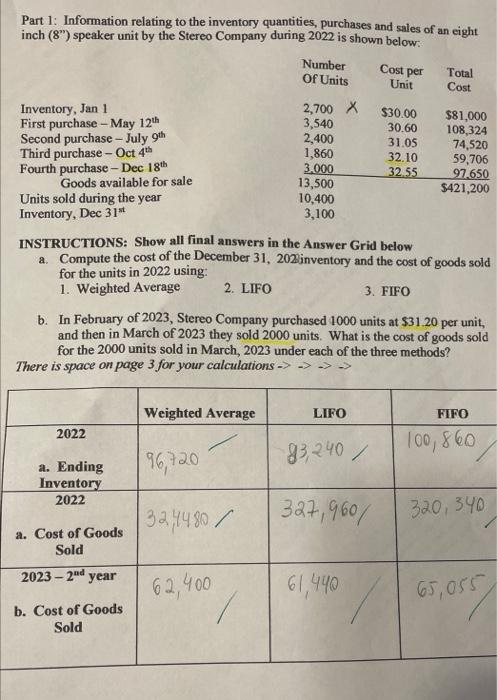 Part 1: Information relating to the inventory quantities, purchases and sales of an eight
inch (8") speaker unit by the Stereo Company during 2022 is shown below:
Number Of Units Cost per Unit Total Cost
Inventory, Jan 1 2,700 X $30.00 $81,000
First purchase – May 12th 3,540 30.60 108,324
Second purchase – July 9th 2,400 31.05 74,520
Third purchase – Oct 4th 1,860 32.10 59,706
Fourth purchase – Dec 18th 3,000 32.55 97,650
Goods available for sale 13,500 $421,200
Units sold during the year 10,400
Inventory, Dec 31st 3,100
INSTRUCTIONS: Show all final answers in the Answer Grid below
a. Compute the cost of the December 31, 202 inventory and the cost of goods sold
for the units in 2022 using:
1. Weighted Average 2. LIFO 3. FIFO
b. In February of 2023, Stereo Company purchased 1000 units at $31.20 per unit,
and then in March of 2023 they sold 2000 units. What is the cost of goods sold
for the 2000 units sold in March, 2023 under each of the three methods?
There is space on page 3 for your calculations -> -> -> ->
Weighted Average LIFO FIFO
2022
a. Ending Inventory 96,720 93,240 100,860
2022
a. Cost of Goods Sold 324480 327,960 320,340
2023 – 2nd year
b. Cost of Goods Sold 62,400 61,440 65,055